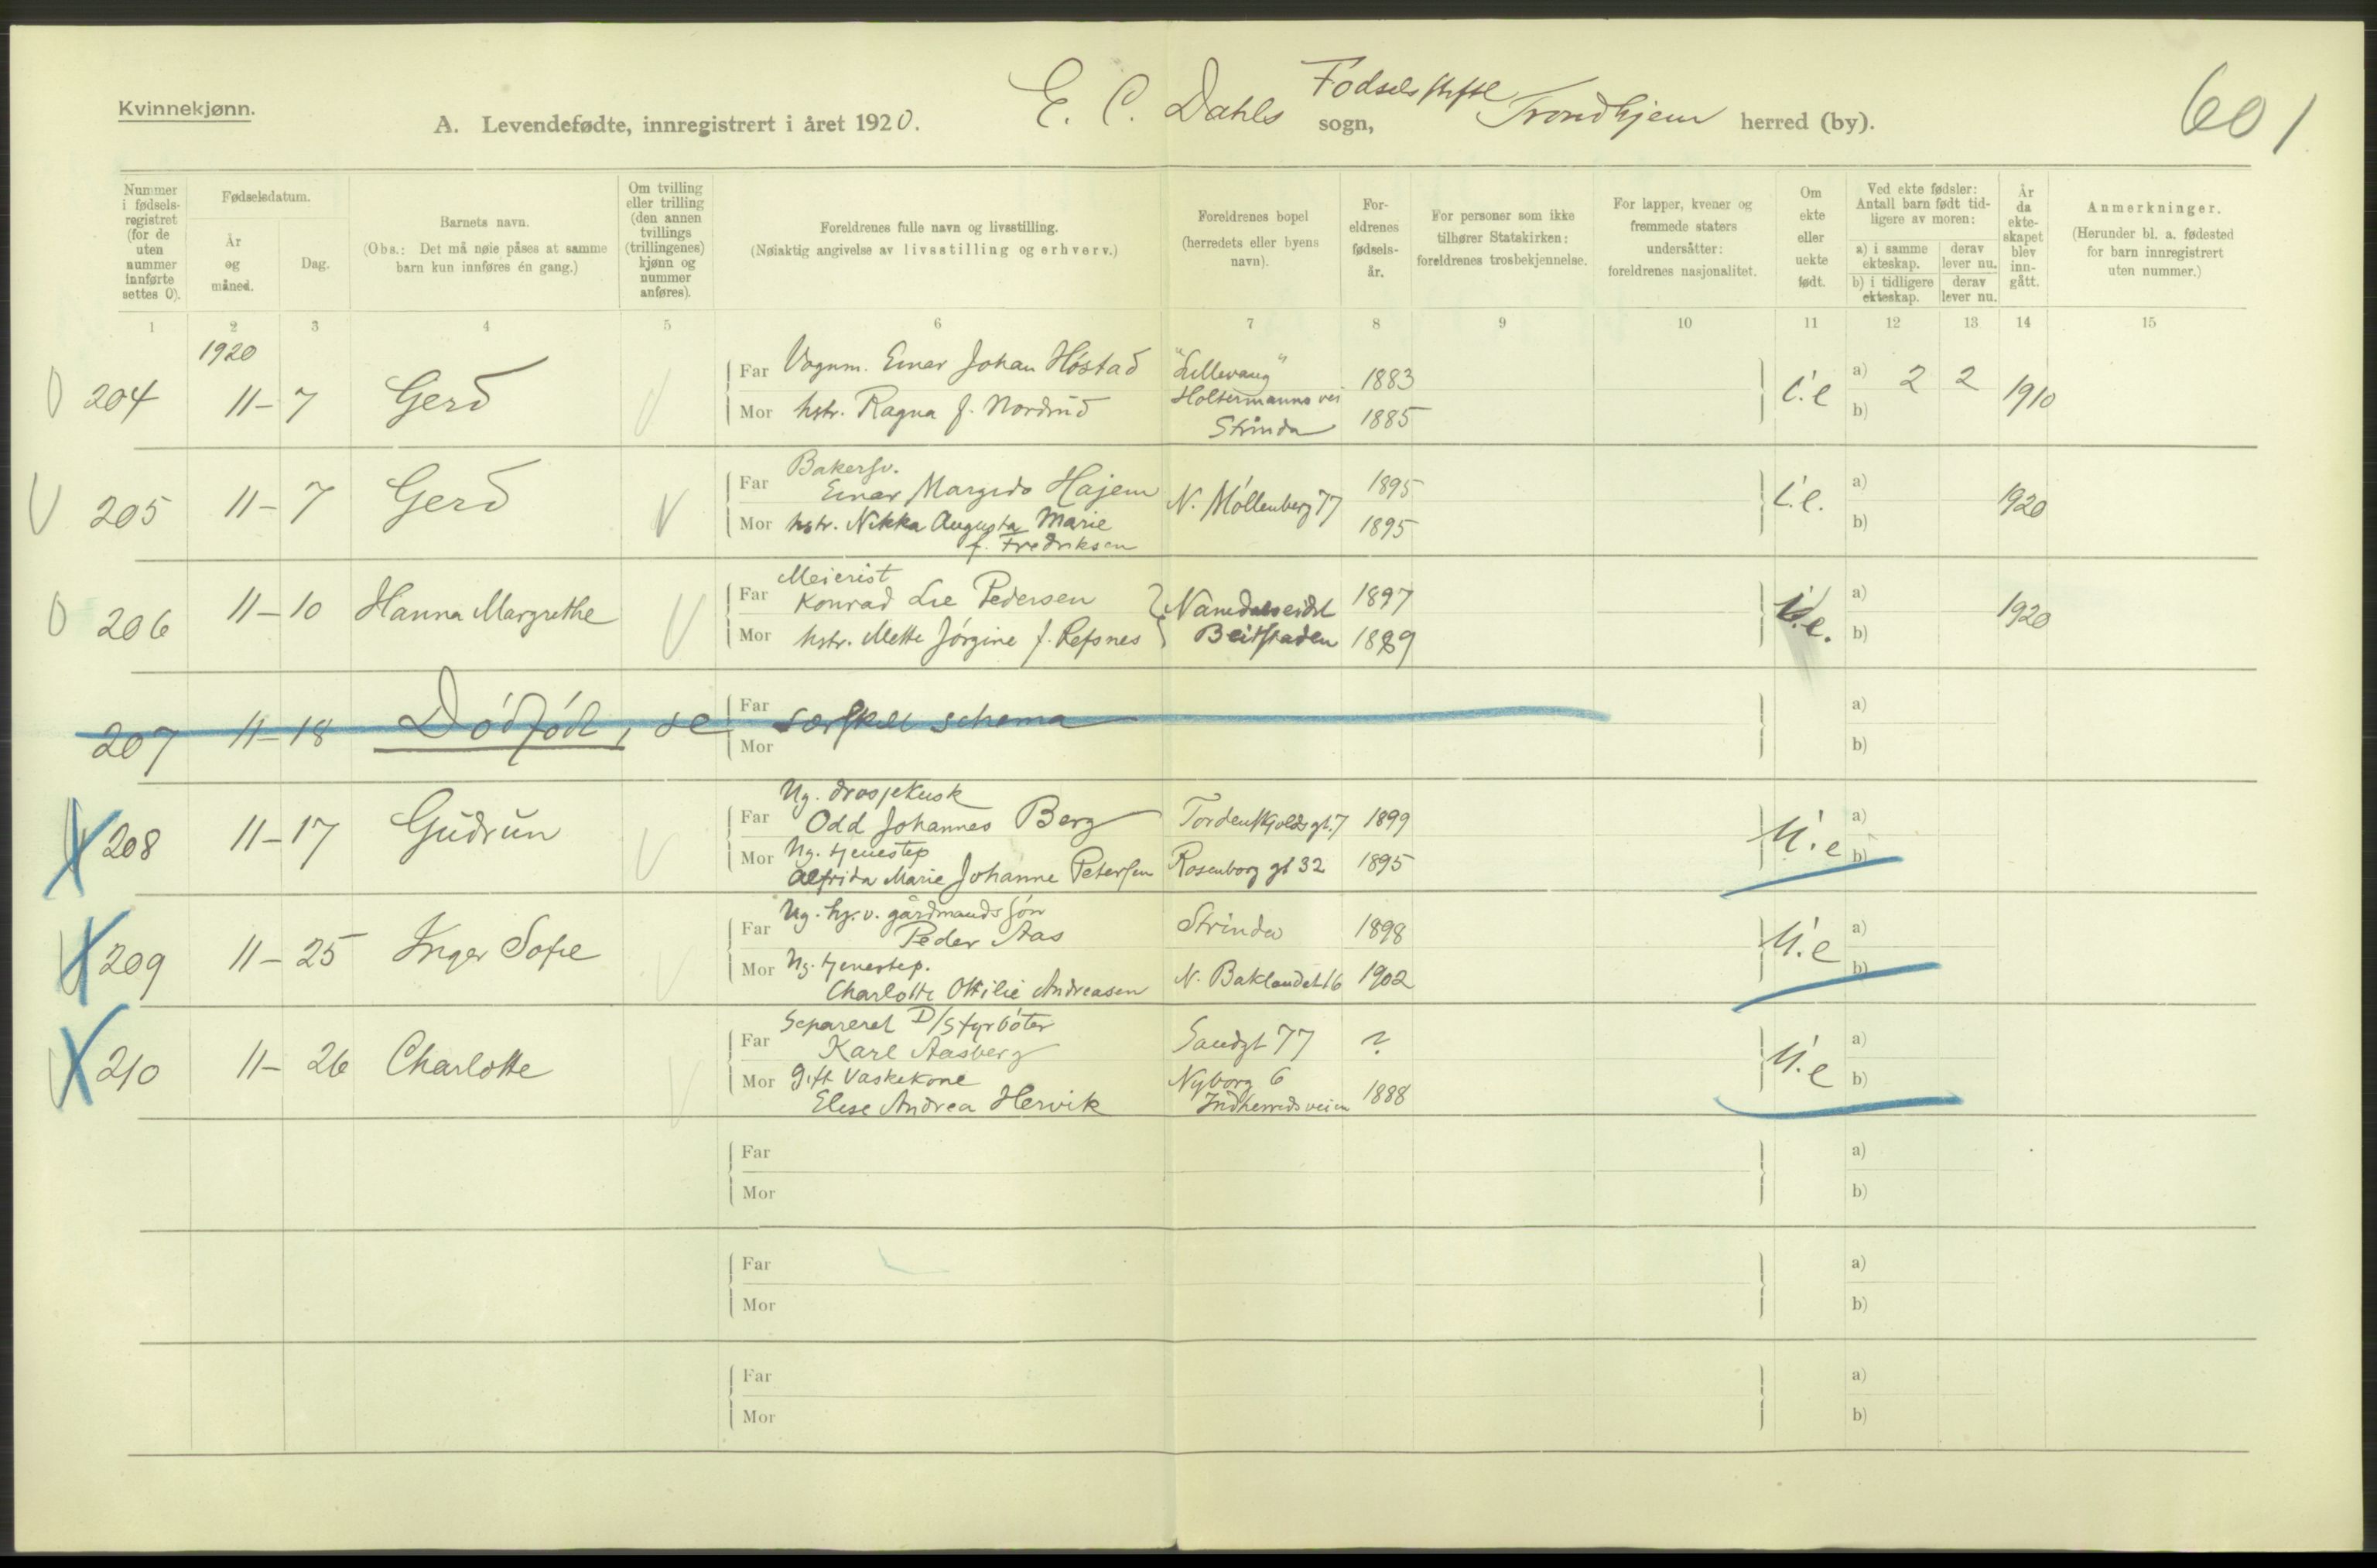 Kvinnekjønn.
A. Levendefødte, innregistrert i året 1920.
E. C. Dahls Fødselsstiftl sogn, Trondhjem herred (by).
601
Nummer i fødselsregistret (for de uten nummer innførte settes 0).
Fødselsdatum.
År og måned.
Dag.
Barnets navn.
(Obs.: Det må nøie påses at samme barn kun innføres én gang.)
Om tvilling eller trilling (den annen tvillings (trillingenes) kjønn og nummer anføres).
Foreldrenes fulle navn og livsstilling.
(Nøiaktig angivelse av livsstilling og erhverv.)
Foreldrenes bopel (herredets eller byens navn).
Foreldrenes fødselsår.
For personer som ikke tilhører Statskirken: foreldrenes trosbekjennelse.
For lapper, kvener og fremmede staters undersåtter: foreldrenes nasjonalitet.
Om ekte eller uekte født.
Ved ekte fødsler: Antall barn født tidligere av moren:
a) i samme ekteskap.
derav lever nu.
b) i tidligere ekteskap.
derav lever nu.
År da ekteskapet blev inngått.
Anmerkninger.
(Herunder bl. a. fødested for barn innregistrert uten nummer.)
1 2 3 4 5 6 7 8 9 10 11 12 13 14 15
1920
204 11 - 7 Gerd
Far Vognm. Einar Johan Høstad "Lillevang" 1883
Mor hstr. Ragna f. Nordrud Holtermanns vei Strinda 1885
i.e a) 2 2 1910
b)
205 11 - 7 Gerd
Far Bakersv. Einar Margido Hajem N. Møllenberg 77 1895
Mor hstr. Nikka Augusta Marie f. Fredriksen 1895
i.e. a) 1920
b)
206 11 - 10 Hanna Margrethe
Far Meierist Konrad Lie Pedersen Namdalseidet 1897
Mor hstr. Mette Jørgine f. Refsnes Beitstaden 1889
i.e. a) 1920
b)
207 11 - 18 Dødfødt, se særskilt schema
Far
Mor
a)
b)
208 11 - 17 Gudrun
Far Ug. drosjekusk Odd Johannes Berg Tordenskjolds gt. 7 1899
Mor Ug. tjenestep Alfrida Marie Johanne Petersen Rosenborg gt 32 1895
U.e a)
b)
209 11 - 25 Inger Sofie
Far Ug. hj. v. gårdmands søn Peder Aas Strinda 1898
Mor Ug. tjenestep. Charlotte Ottilie Andreasen N. Baklandet 16 1902
U.e a)
b)
210 11 - 26 Charlotte
Far Separeret D/S fyrbøter Karl Aasberg Sandgt 77 ?
Mor Gift Vaskekone Elise Andrea Hervik Nyborg 6 Indherredsveien 1888
U.e a)
b)
Far
Mor
a)
b)
Far
Mor
a)
b)
Far
Mor
a)
b)